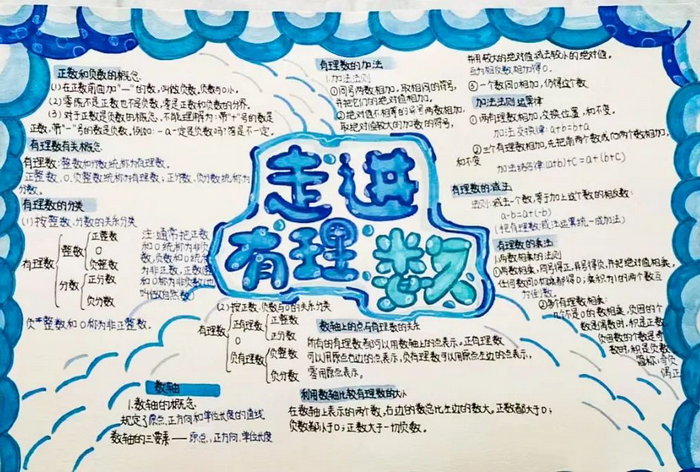 正数和负数的概念
(1)在正数前面加"一"的数,叫做负数,负数小于0.
(2)零既不是正数也不是负数,零是正数和负数的分界。
(3)对于正数是负数的概念,不能理解为:带"+"号的数是
正数,带"-"号的数是负数,例如:-a一定是负数吗?答是不一定。
有理数有关概念
有理数:整数和分数统称为有理数。
正整数、0、负整数统称为有理数;正分数、负分数统称为
分数。
有理数的分类
(1)按整数、分数的关系分类
有理数
整数
正整数
0
负整数
分数
正分数
负分数
注:通常把正数
和0统称为非负
数,负数和0统
为非正数,正整数
和0称为非负整数
叫做自然数)
负整数和0称为非正整数。
走进
有理数
(2)按正数、负数与0的关系分类
有理数
正有理数
正整数
正分数
0
负有理数
负整数
负分数
数轴
1.数轴的概念
规定了原点,正方向和单位长度的直线
数轴的三要素——原点、正方向、单位长度
数轴上的点与有理数的关系
所有的有理数都可以用数轴上的点表示,正有理数
可以用原点右边的点表示,负有理数可以用原点左边的点表示,
零用原点表示。
利用数轴比较有理数的大小
在数轴上表示的两个数,右边的数总比左边的数大。正数都大于0;
负数都小于0;正数大于一切负数。
有理数的加法
1.加法法则
①同号两数相加,取相同的符号,
并把它们的绝对值相加。
②绝对值不相等的异号两数相加,
取绝对值较大的加数的符号,
并用较大的绝对值减去较小的绝对值。
互为相反数相加得0.
③一个数同0相加,仍得这个数
加法法则运算律
①两有理数相加,交换位置,和不变。
加法交换律:a+b=b+a
②三个有理数相加,先把前两个数或后两个数相加,
和不变
加法结合律(a+b)+c=a+(b+c)
有理数的减法
法则:减去一个数,等于加上这个数的相反数:
a-b=a+(-b)
(把有理数减法运算统一成加法)
有理数的乘法
1.两数相乘的法则
①两数相乘,同号得正,异号得负,并把绝对值相乘,
任何数同0相乘都得0;乘积为1的两个数互
为倒数。
②多个有理数相乘:
几个不是0的数相乘,负因的个
数是偶数时,积是正数;
负因数的个数是奇
数时,积是负数
简称:奇负
偶正